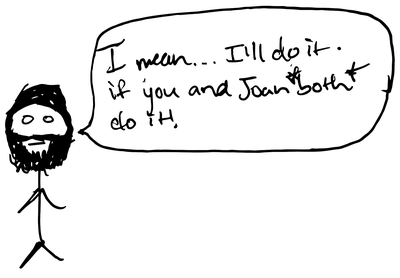 I mean... I'll do it.
if you and Joan *both*
do it.